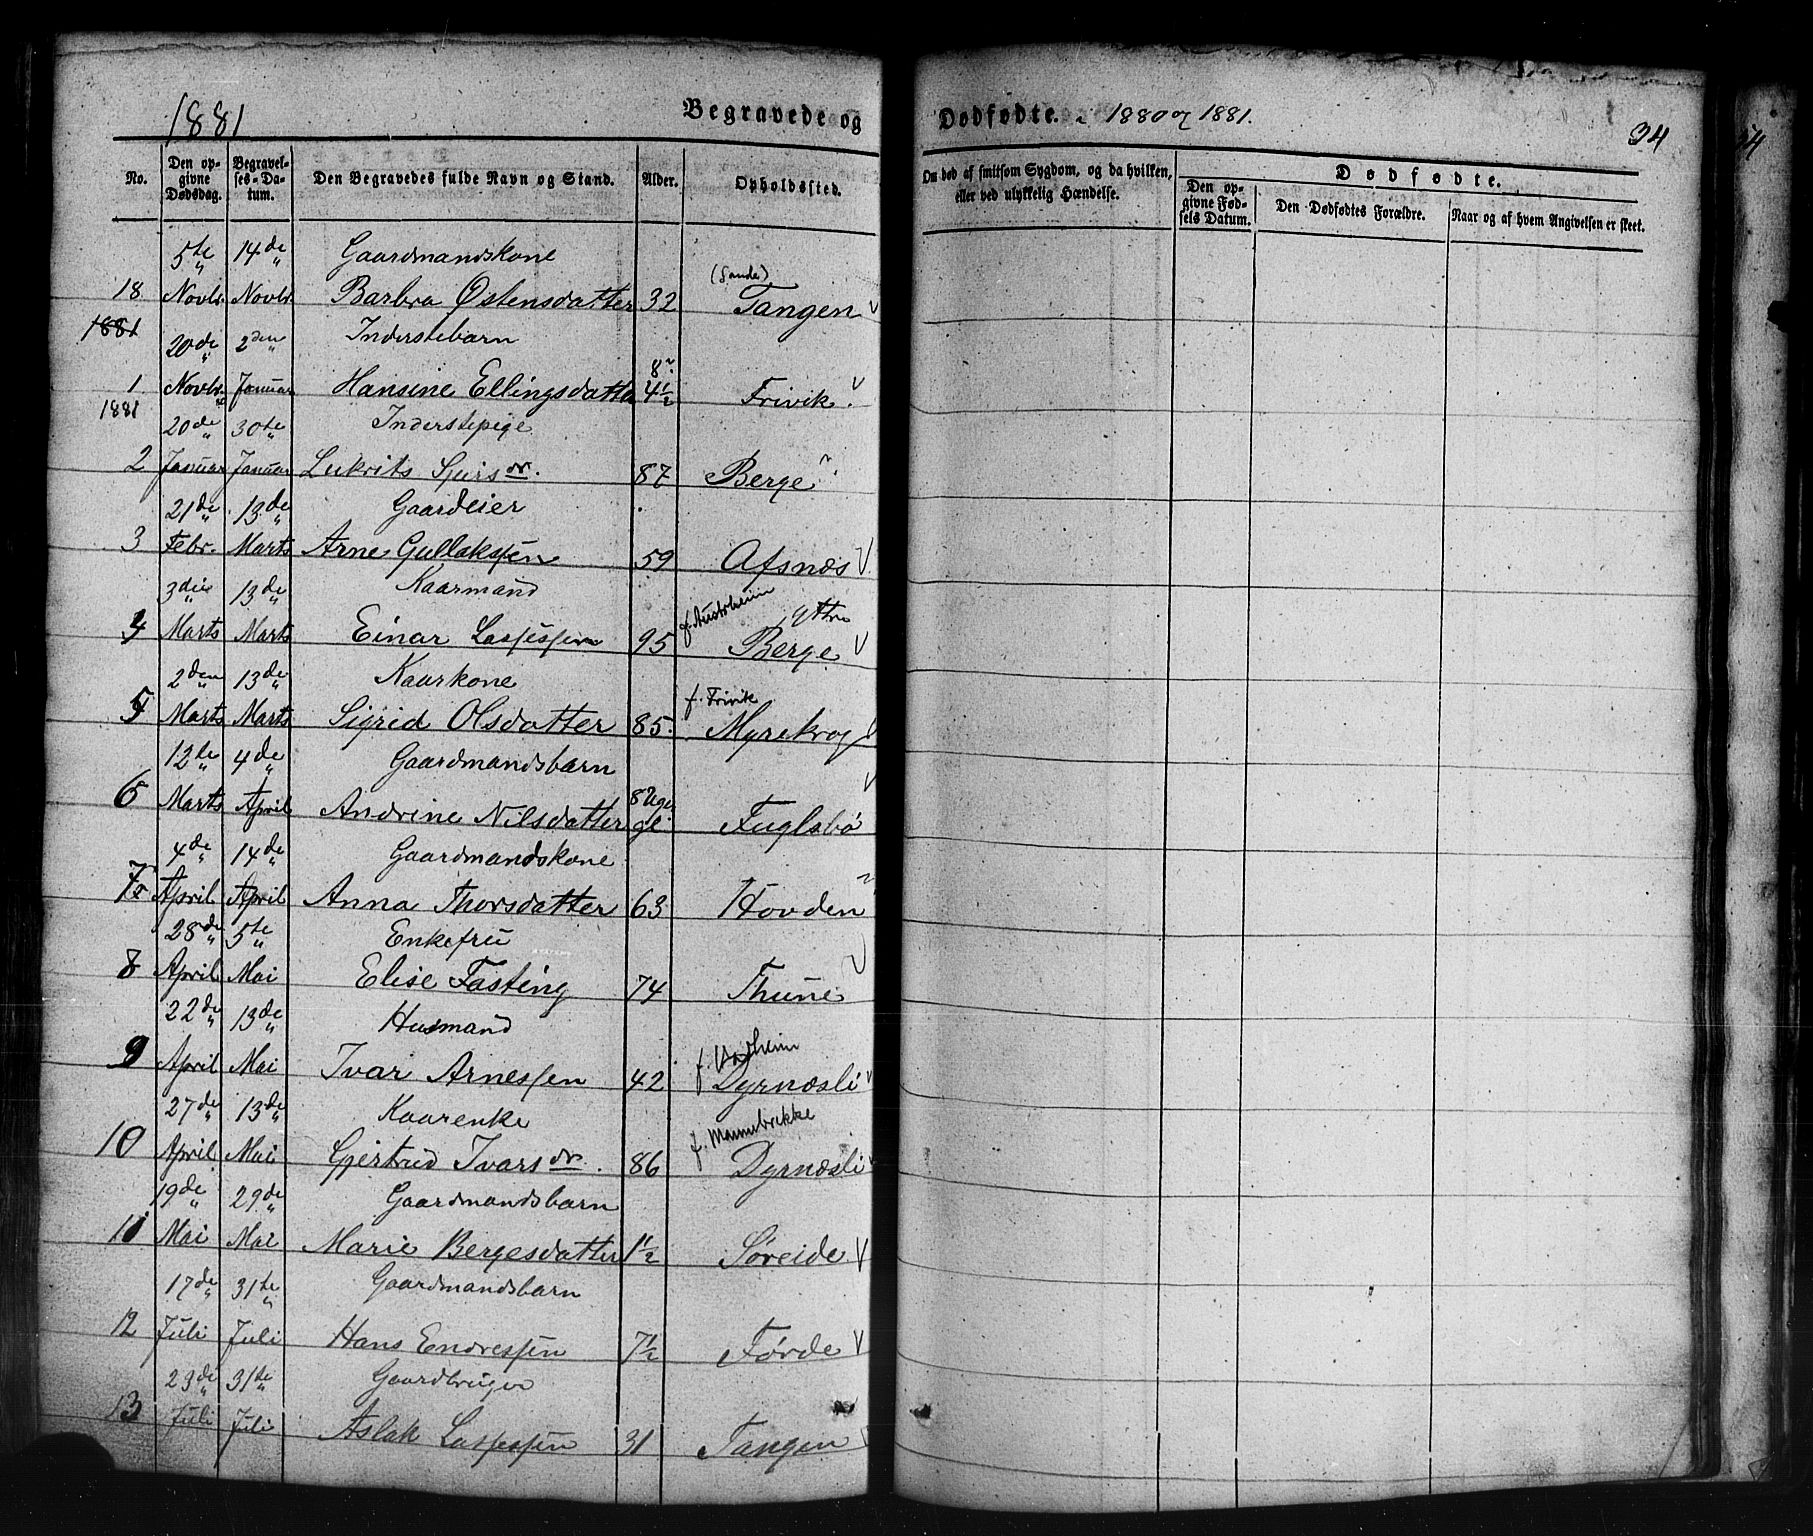 1881 Begravede og Dødfødte. 1880 og 1881. 34
No. Den opgivne Dødsdag. Begravelses-Datum. Den Begravedes fulde Navn og Stand. Alder. Opholdssted. Om død af smitsom Sygdom, og da hvilken, eller ved ulykkelig Hændelse. Dødfødte.
Den opgivne Fødsels Datum. Den Dødfødtes Forældre. Naar og af hvem Angivelsen er skeet.
5te 14de Gaardmandskone (Sande)
18 Novbr. Novbr. Barbra Østensdatter 32 Tangen
1881 20de 2den Inderstebarn
1 Novbr. Januar Hansine Ellingsdatter 4½ Frivik
1881 20de 30te Inderstepige
2 Januar Januar Sjursdr. 87 Berge
21de 13de Gaardeier
3 Febr. Marts Arne Gullakssen 59 Afsnæs
3die 13de Kaarmand f. Austrheim ytre
4 Marts Marts Einar Lassessen 95 Berge
2den 13de Kaarkone f. Frivik
5 Marts Marts Sigrid Olsdatter 85. Myrekrog
12te 4de Gaardmandsbarn
6 Marts April Andrine Nilsdatter 8 Uger Fuglsbø
4de 14de Gaardmandskone
7 April April Anna Thorsdatter 63 Hovden
28de 5te Enkefru
8 April Mai Elise Fasting 74 Thune
22de 13de Husmand f. Vadheim
9 April Mai Ivar Arnessen 42 Dyrnæsli
27de 13de Kaarenke f. Mannebrekke
10 April Mai Gjertrud Ivarsdr. 86 Dyrnæsli
19de 29de Gaardmandsbarn
11 Mai Mai Marie Bergesdatter 1½ Søreide
17de 31te Gaardmandsbarn
12 Juli Juli Hans Endressen 7½ Førde
23de 31te Gaardbruger
13 Juli Juli Aslak Lassessen 31 Tangen